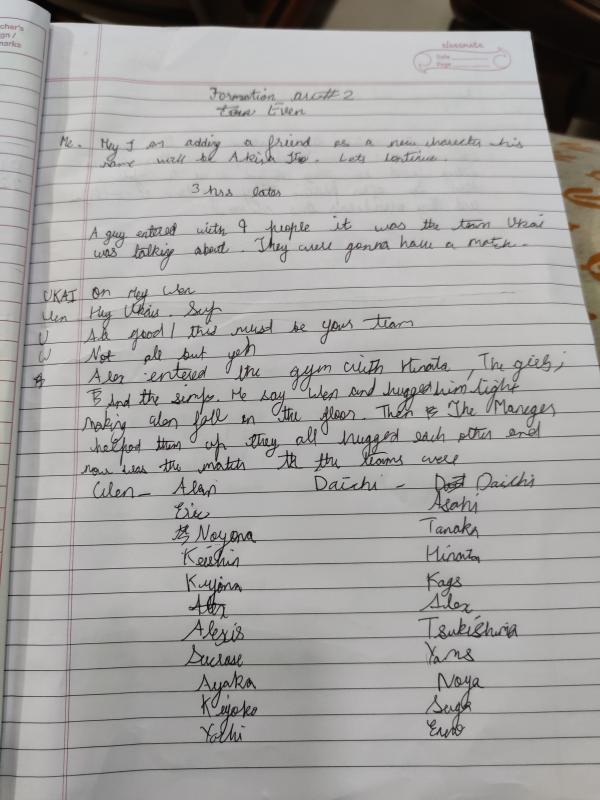 cher's
gn /
marks
classmate
Date
Page
Formation arc # 2
Even
Me. Hey I am adding a friend as a new character his
name will be Akira Ito. Lets continue.
3 hrs later
A guy entered with 9 people it was the team Ukai
was talking about. They were gonna have a match.
UKAI Oh Hey
Hey Ukai. Sup
U All good / this must be your team
Not all but yeh
Alex entered the gym with Hinata, The girls,
And the simps. He say and hugged him tight
making fall on the floor. Then The Maneger
helped them up they all hugged each other and
now was the match the teams were
Alan Daichi - Daichi
Eric Asahi
Noyona Tanaka
Keishin Hinata
Kiyona Kags
Alex Alex
Alexis Tsukishima
Sucrose Yams
Ayaka Noya
Kiyoko Suga
Yachi